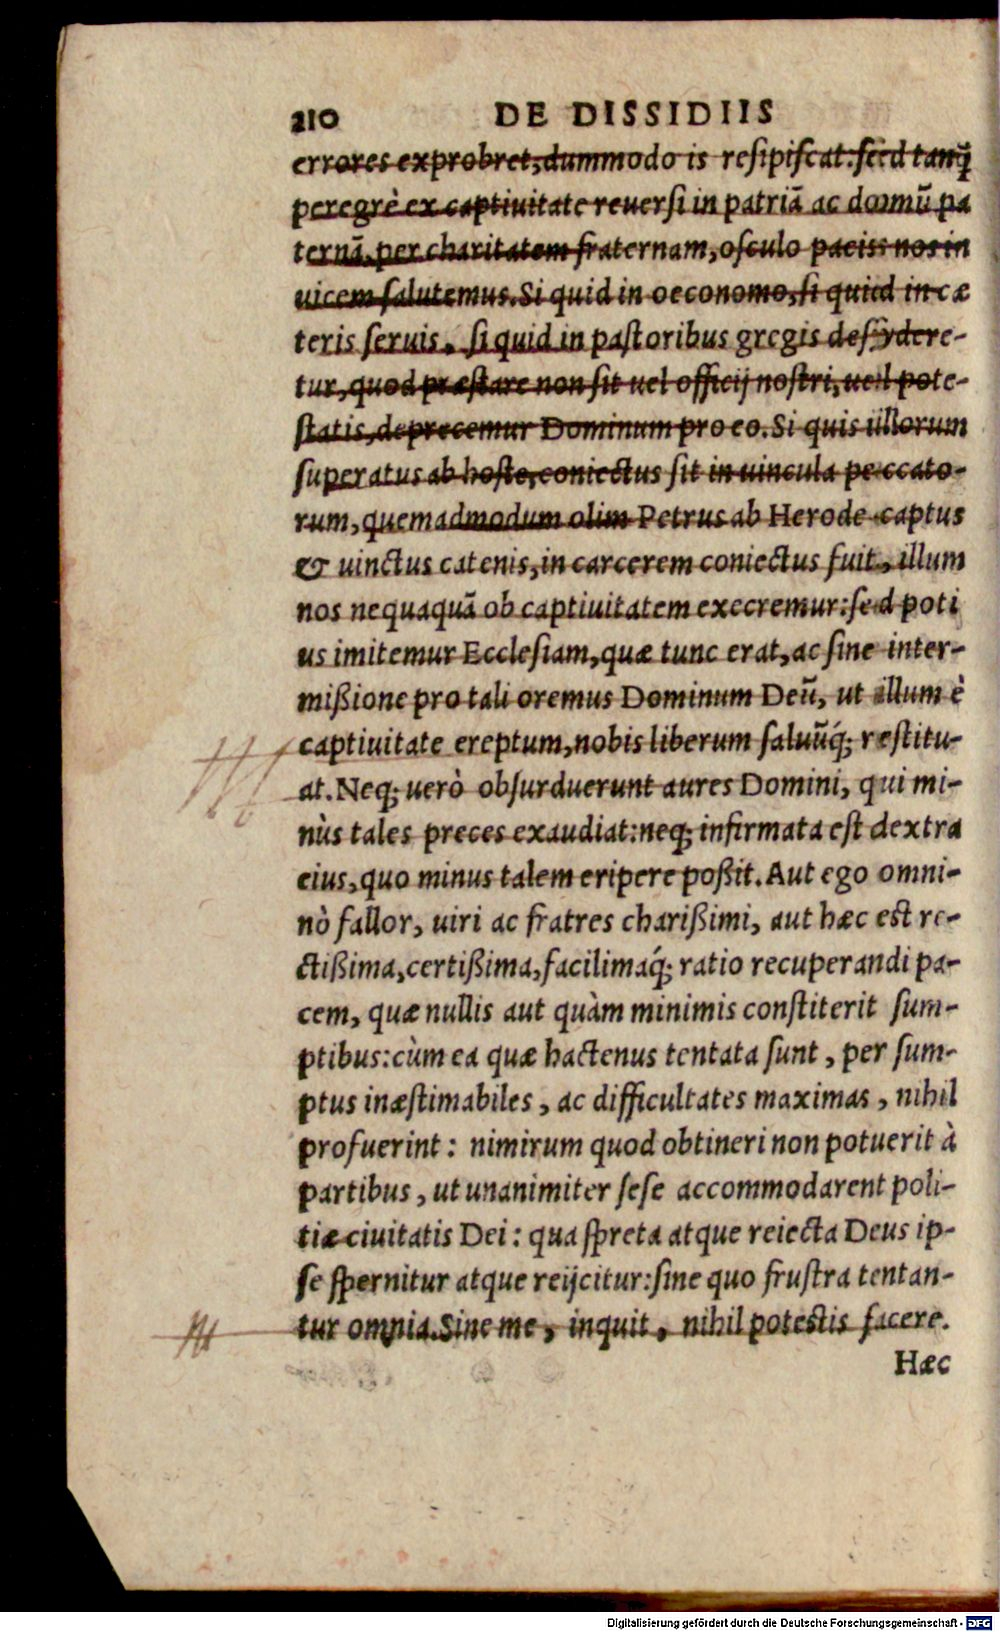 210 DE DISSIDIIS
errores exprobret, dummodo is resipiscat: sed tanq̃
peregrè ex captiuitate reuersi in patriã ac domũ pa
ternã, per charitatem fraternam, osculo pacis nos in
uicem salutemus. Si quid in oeconomo, si quid in cæ
teris seruis, si quid in pastoribus gregis desydere-
tur, quod præstare non sit uel officij nostri, uel pote-
statis, deprecemur Dominum pro eo. Si quis illorum
superatus ab hoste, coniectus sit in uincula peccato-
rum, quemadmodum olim Petrus ab Herode captus
& uinctus catenis, in carcerem coniectus fuit, illum
nos nequaquã ob captiuitatem execremur: sed poti
us imitemur Ecclesiam, quæ tunc erat, ac sine inter-
mißione pro tali oremus Dominum Deũ, ut illum è
captiuitate ereptum, nobis liberum saluũq́; restitu-
at. Neq; uerò obsurduerunt aures Domini, qui mi-
nùs tales preces exaudiat: neq; infirmata est dextra
eius, quo minus talem eripere poßit. Aut ego omni-
nò fallor, uiri ac fratres charißimi, aut hæc est re-
ctißima, certißima, facilimaq́; ratio recuperandi pa-
cem, quæ nullis aut quàm minimis constiterit sum-
ptibus: cùm ea quæ hactenus tentata sunt, per sum-
ptus inæstimabiles, ac difficultates maximas, nihil
profuerint: nimirum quod obtineri non potuerit à
partibus, ut unanimiter sese accommodarent poli-
tiæ ciuitatis Dei: qua spreta atque reiecta Deus ip-
se spernitur atque reijcitur: sine quo frustra tentan-
tur omnia. Sine me, inquit, nihil potestis facere.
Hæc
Digitalisierung gefördert durch die Deutsche Forschungsgemeinschaft - DFG